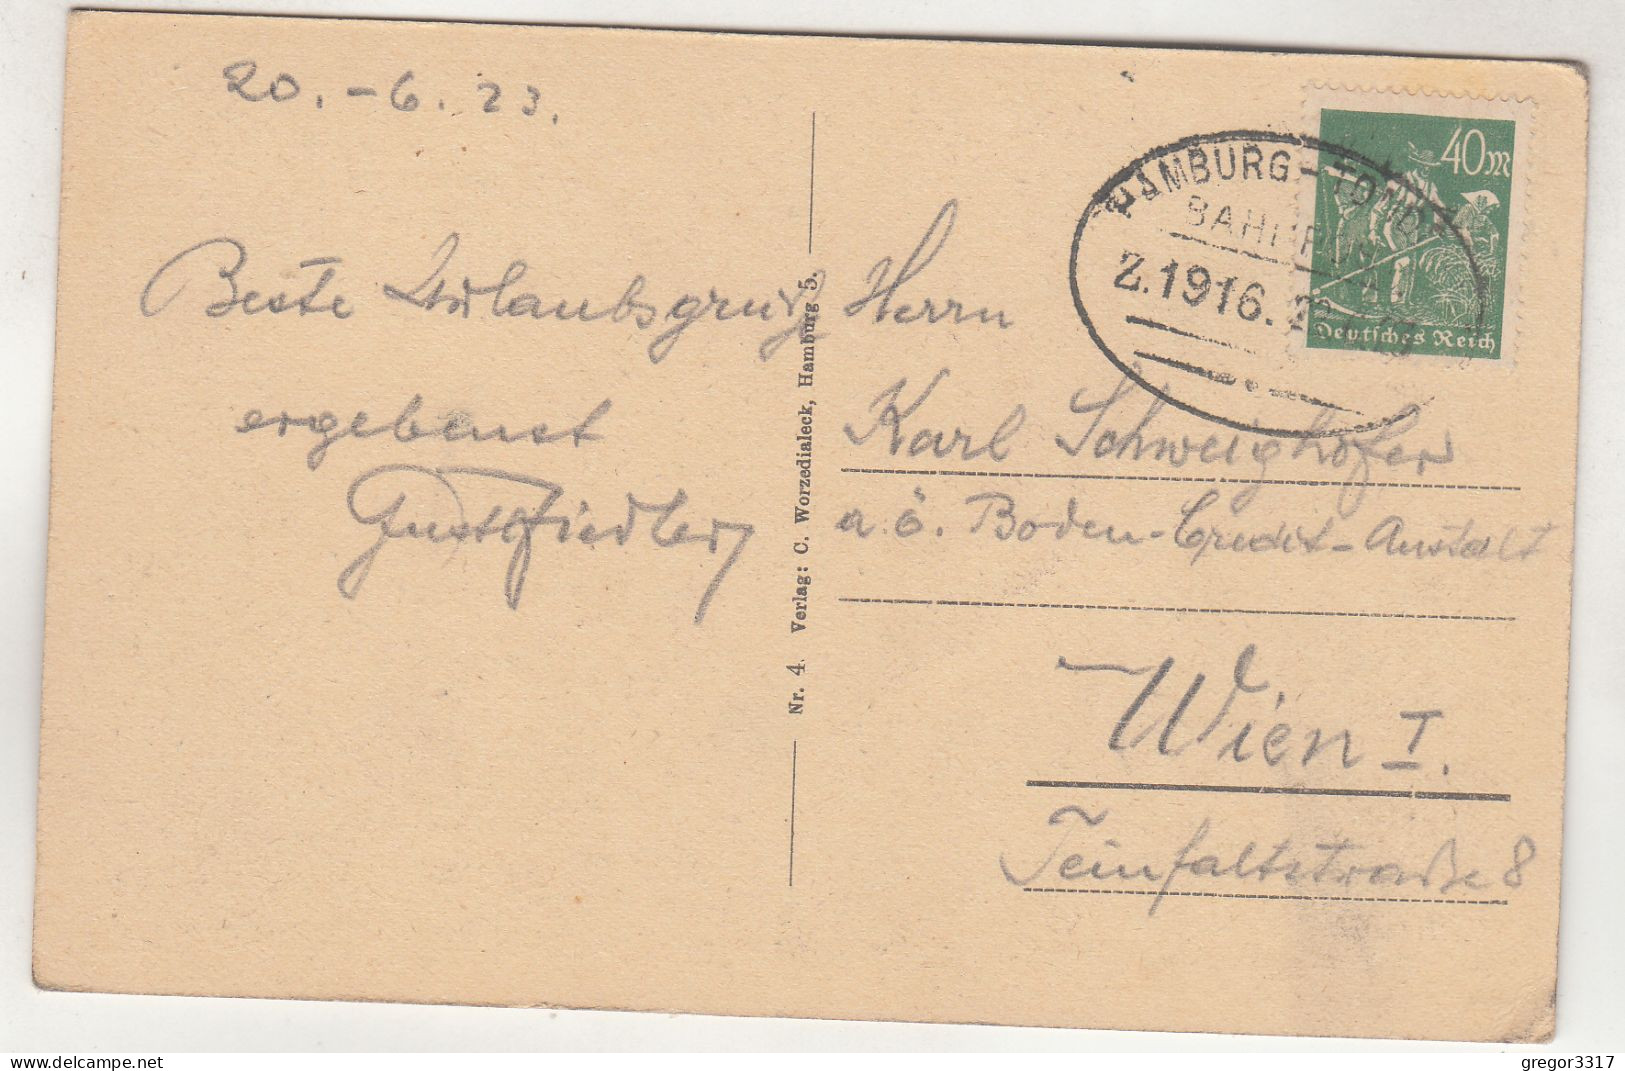 20.-6.23.
Beste Urlaubsgrüße
ergebenst
Gustl Fiedler
Nr. 4. Verlag: C. Worzedialeck, Hamburg 5.
HAMBURG-TOND
BAHNPOST
Z.1916.
40M
Deutsches Reich
Herrn
Karl Schweighofer
a. ö. Boden-Credit-Anstalt
Wien I.
Teinfaltstraße 8
gregor3317